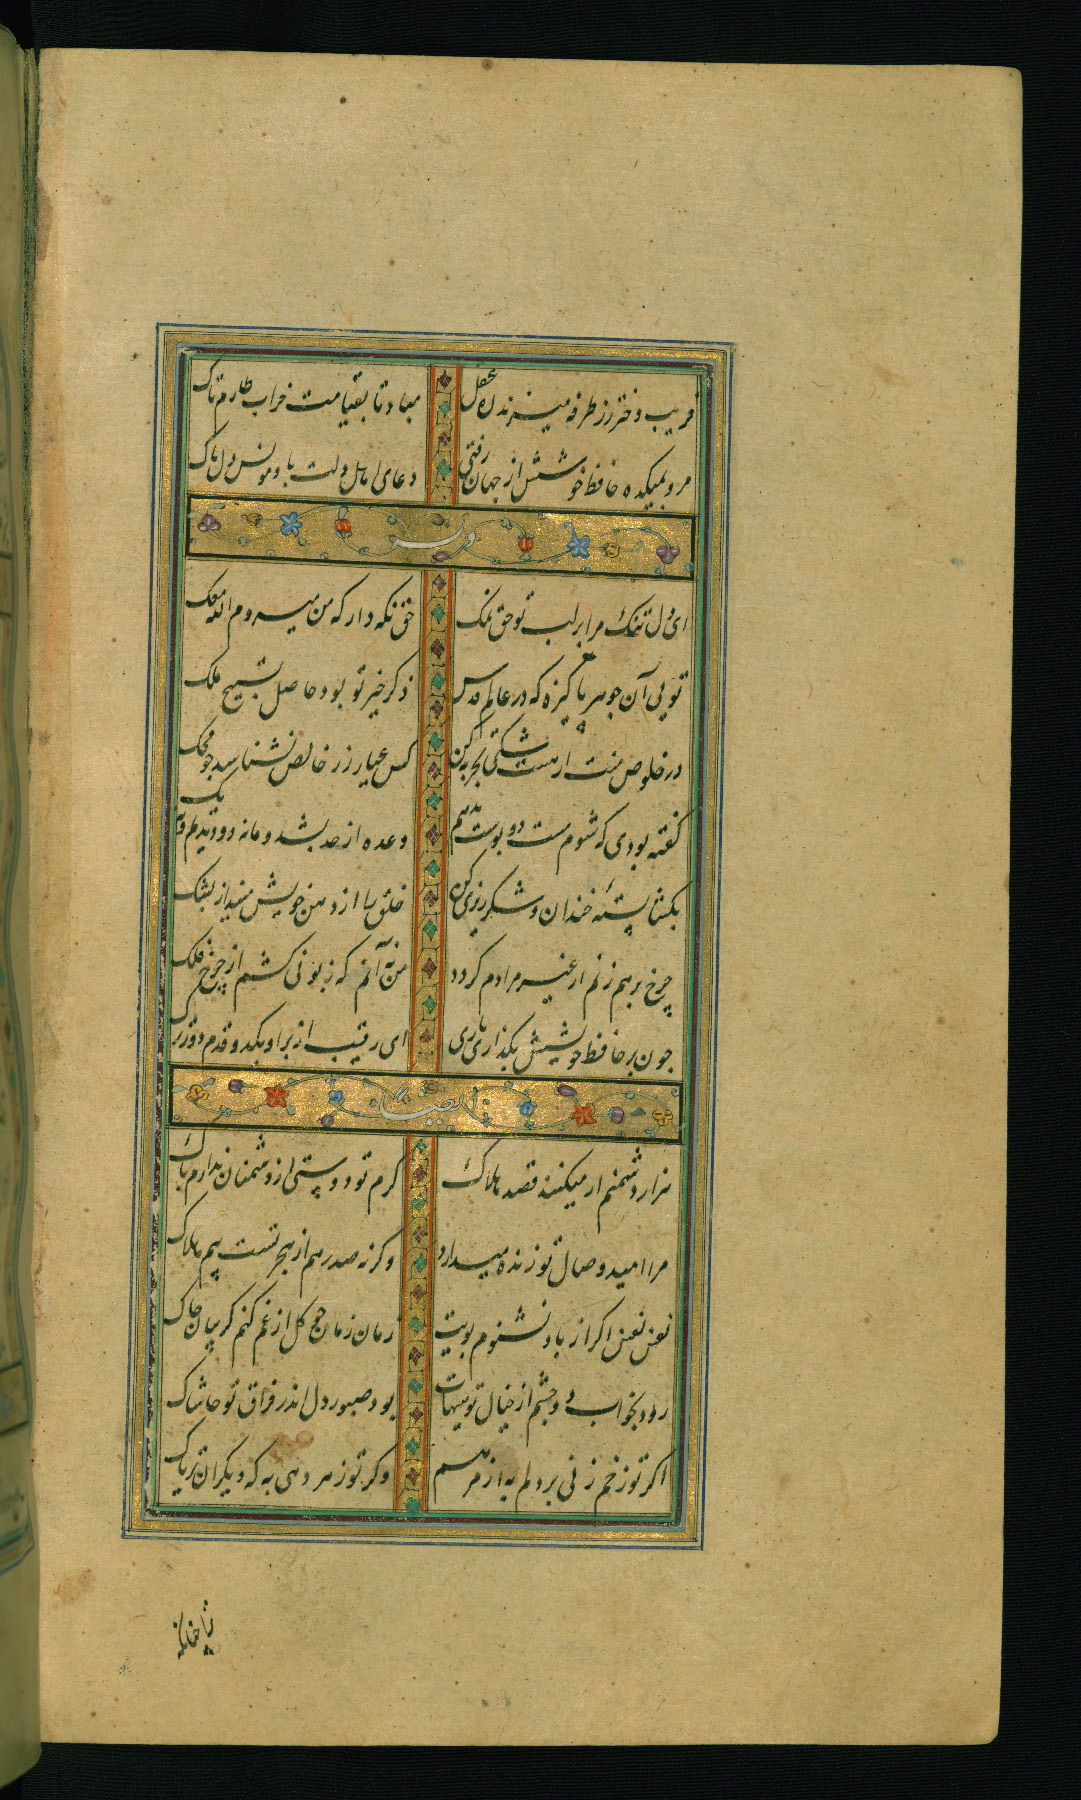 فریب دختر رز طرفه میزند ره عقل مباد تا بقیامت خراب طارم تاک
مرو بمیکده حافظ خوشش از جهان رفتی دعای اهل دلت باد مونس دل پاک
وله
ای دل تنک مرا بر لب تو حق نمک حق نکه دار که من میروم الله معک
تویی آن جوهر پاکیزه که در عالم قدس ذکر خیر تو بود حاصل تسبیح ملک
در خلوص منت ار هست شکی تجربه کن کس عیار زر خالص نشناسد جو محک
کفته بودی که شوم مست دو بوست بدهم وعده از حد بشد و ما نه دو دیدیم و نه یک
بکشا پستهٔ خندان و شکر ریزی کن خلق را از دهن خویش مینداز بشک
چرخ بر هم زنم ار غیر مرادم کردد من نه آنم که زبونی کشم از چرخ فلک
جون بر حافظ خویشش بکذاری باری ای رقیب از بر او یکدو قدم دورترک
ایضا
هزار دشمنم ار میکنند قصد هلاک کرم تو دوستی از دشمنان ندارم باک
مرا امید وصال تو زنده میدارد وکرنه صد رهم از هجر تست بیم هلاک
نفس نفس اکر از باد نشنوم بویت زمان زمان جو کل از غم کنم کریبان جاک
رود بخواب دو چشم از خیال تو هیهات بود صبور دل اندر فراق تو حاشاک
اکر تو زخم زنی بر دلم به از مرهم وکر تو زهر دهی به که دیکران تریاک